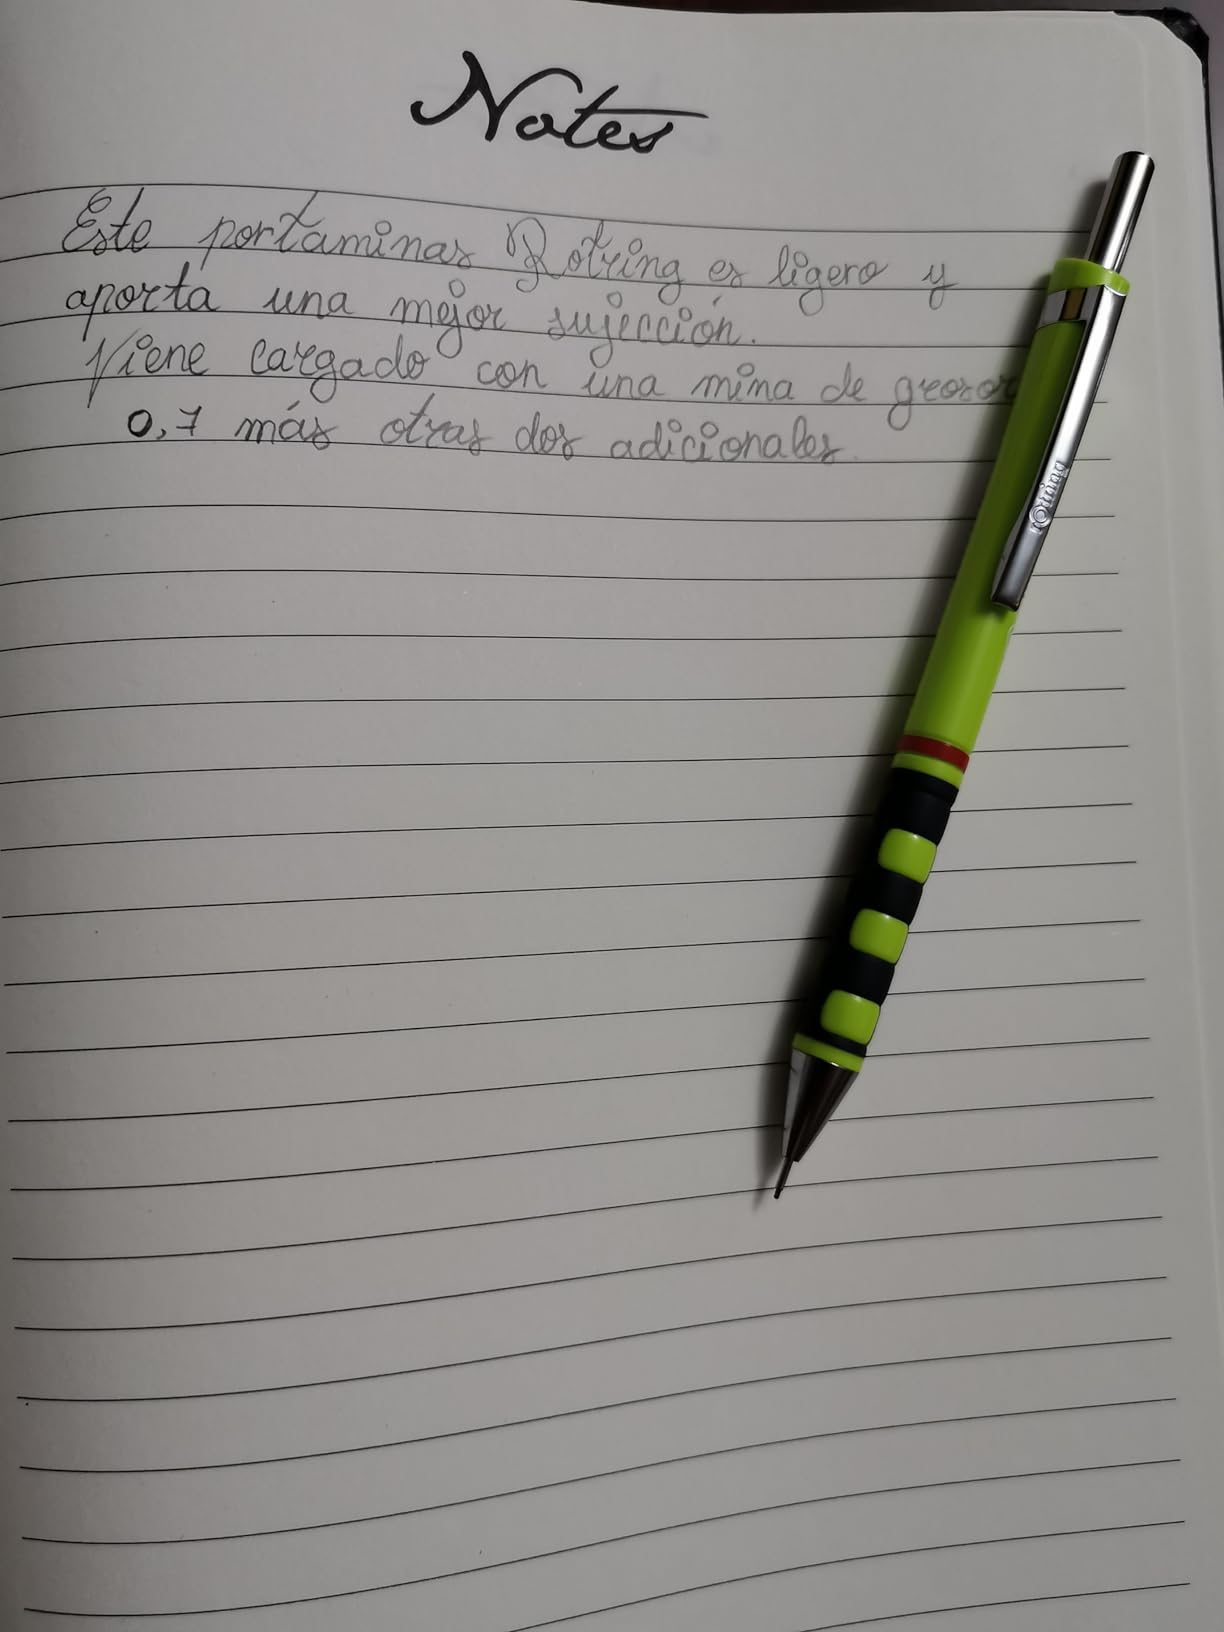 Notes
Este portaminas Rotring es ligero y
aporta una mejor sujección.
Viene cargado con una mina de grosor
0,7 más otras dos adicionales.
rOtring